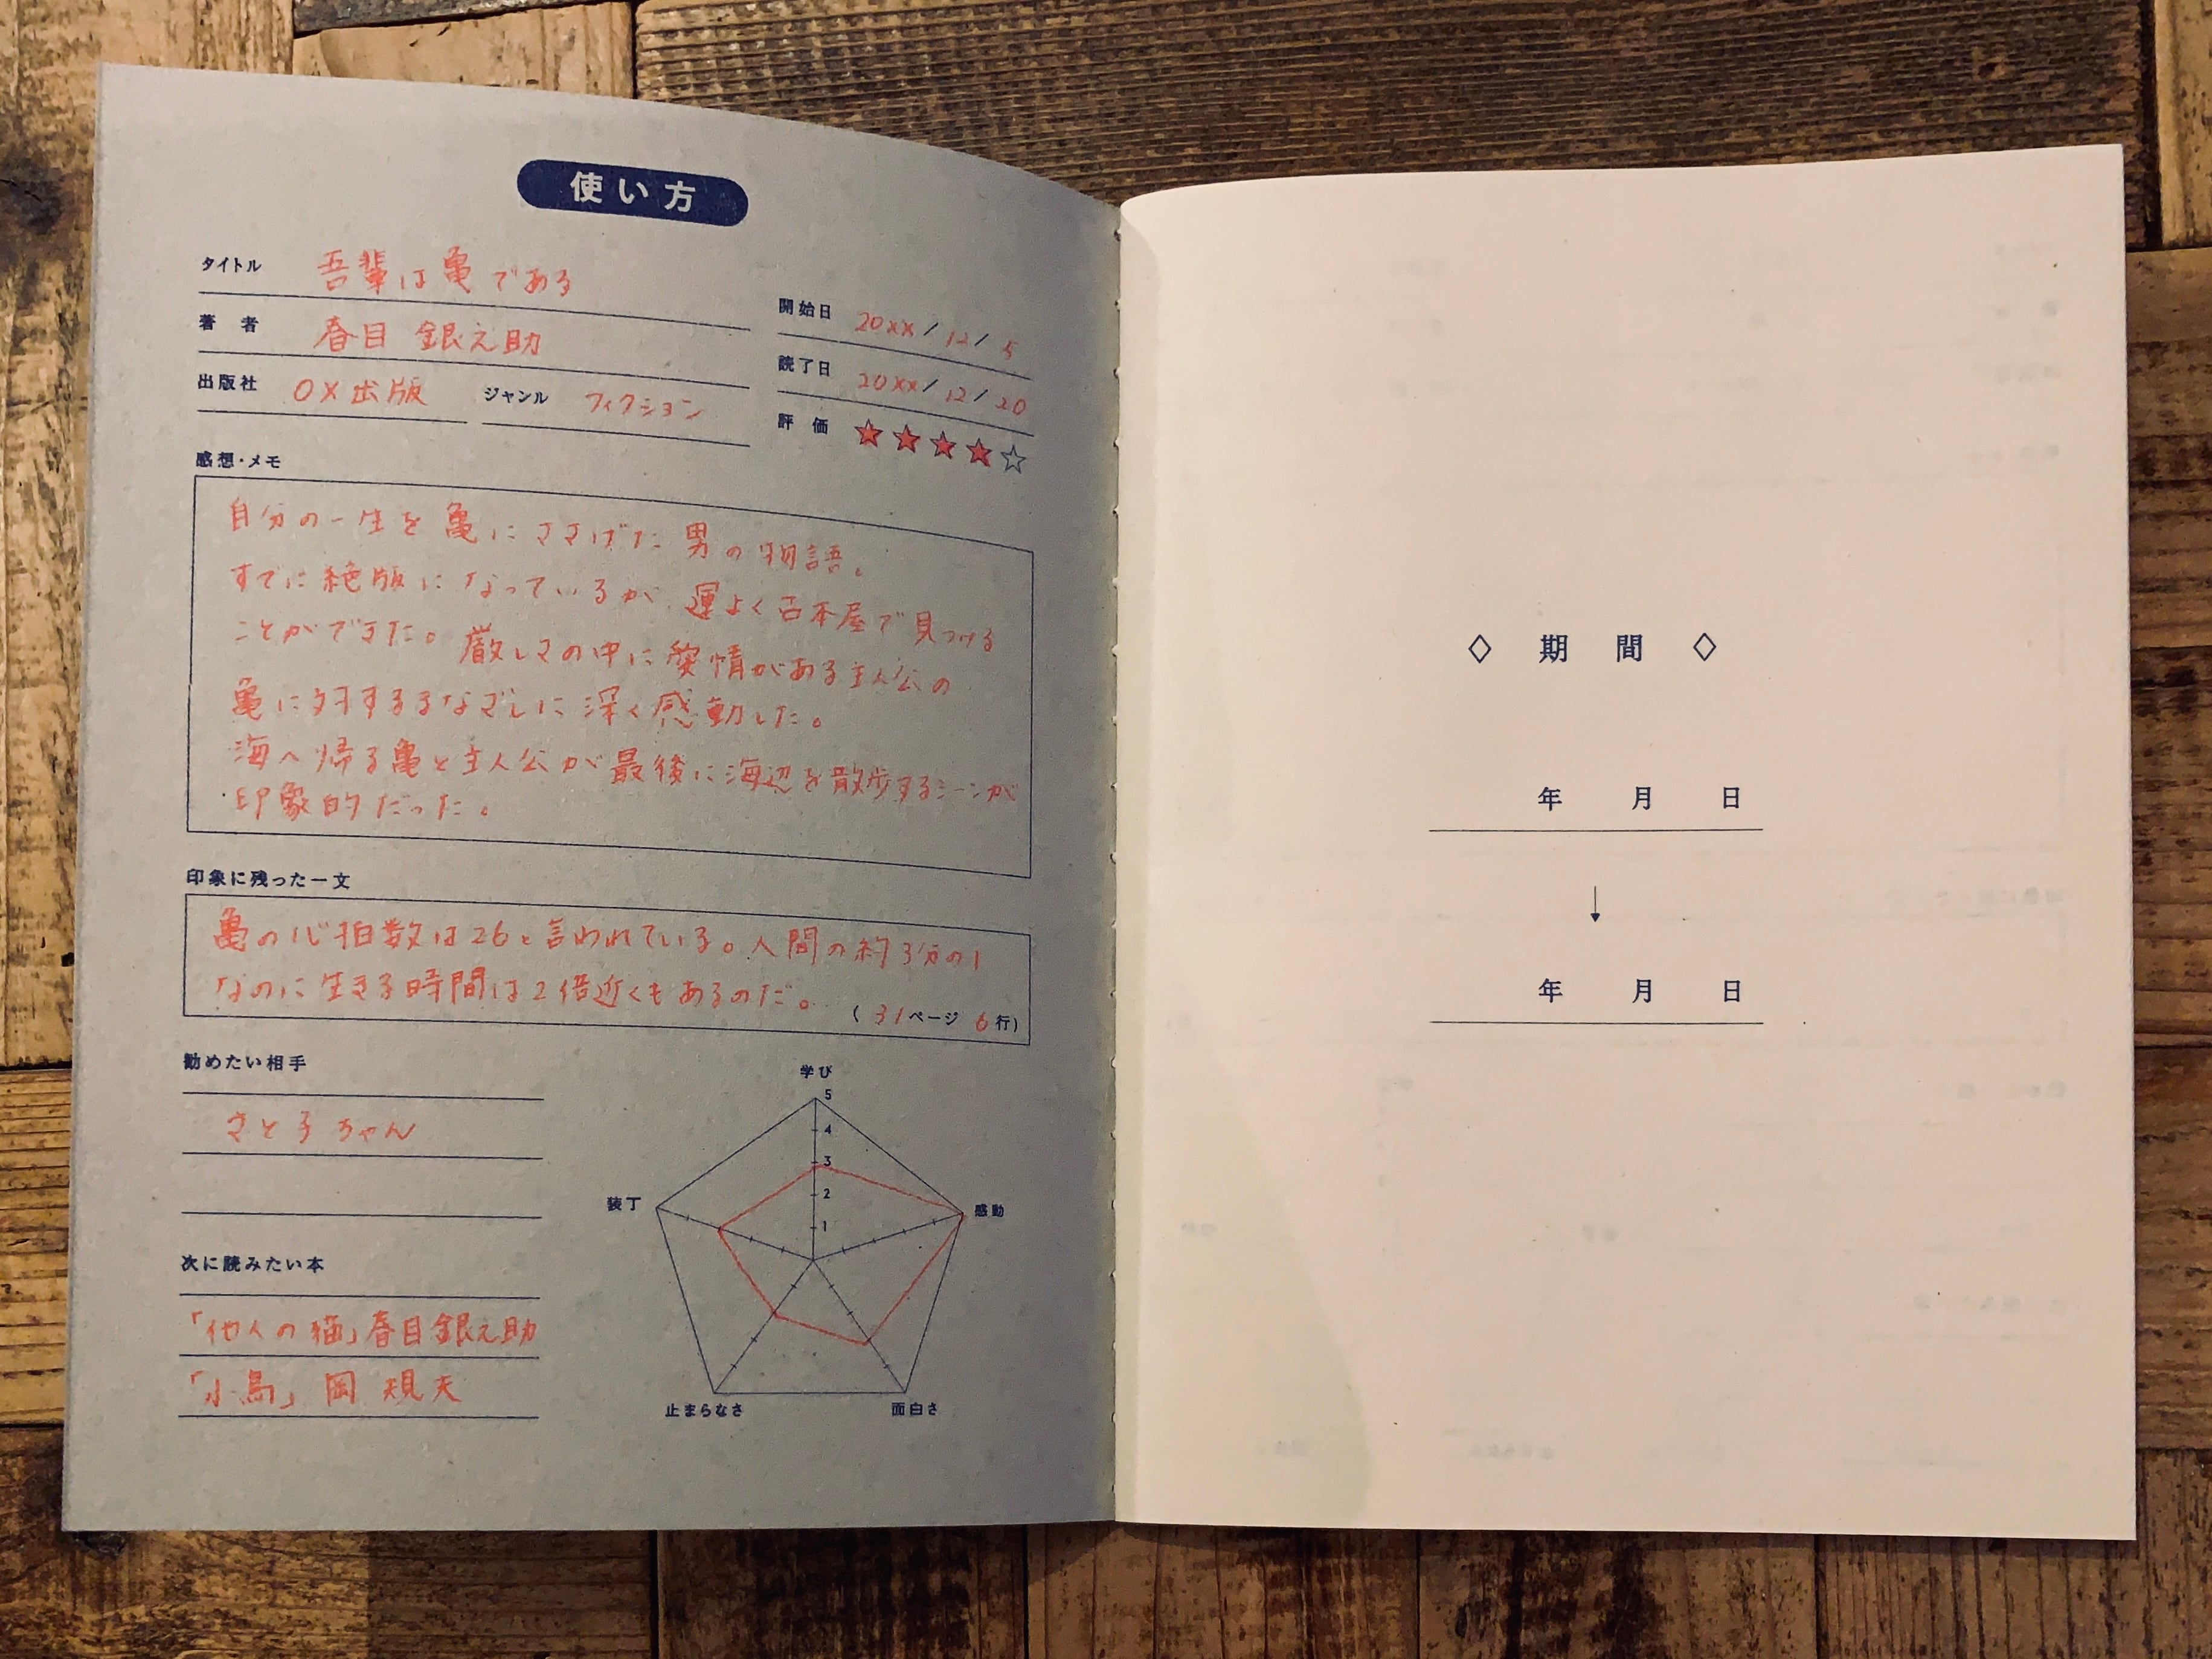 使い方
タイトル 吾輩は亀である
著者 春目 銀之助
出版社 〇×出版 ジャンル フィクション
開始日 20xx/12/5
読了日 20xx/12/20
評価 ★★★★☆
感想・メモ
自分の一生を亀にささげた男の物語。
すでに絶版になっているが、運よく古本屋で見つける
ことができた。厳しさの中に愛情がある主人公の
亀に対するまなざしに深く感動した。
海へ帰る亀と主人公が最後に海辺を散歩するシーンが
印象的だった。
印象に残った一文
亀の心拍数は26と言われている。人間の約3分の1
なのに生きる時間は2倍近くもあるのだ。
(31ページ 6行)
勧めたい相手
さと子ちゃん
次に読みたい本
「他人の猫」春目銀之助
「小鳥」岡 規夫
学び
5
4
3
2
1
感動
面白さ
止まらなさ
装丁
◇ 期 間 ◇
年 月 日
↓
年 月 日